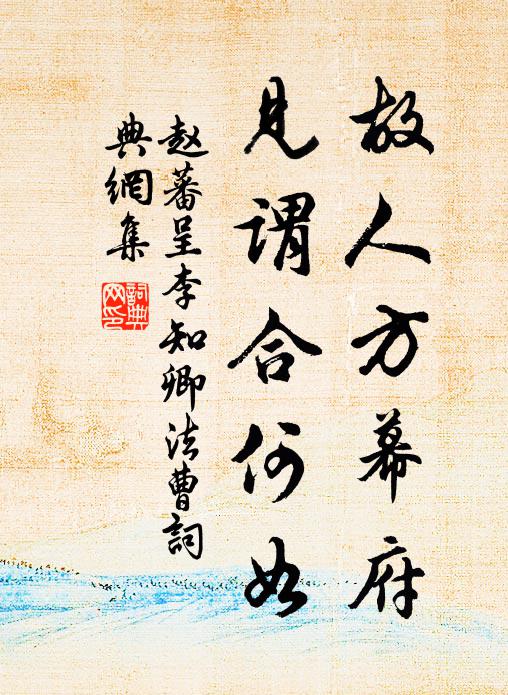 故人方幕府
見謂合何如
赵蕃呈李知卿法曹詞
典網集
詞典
网印